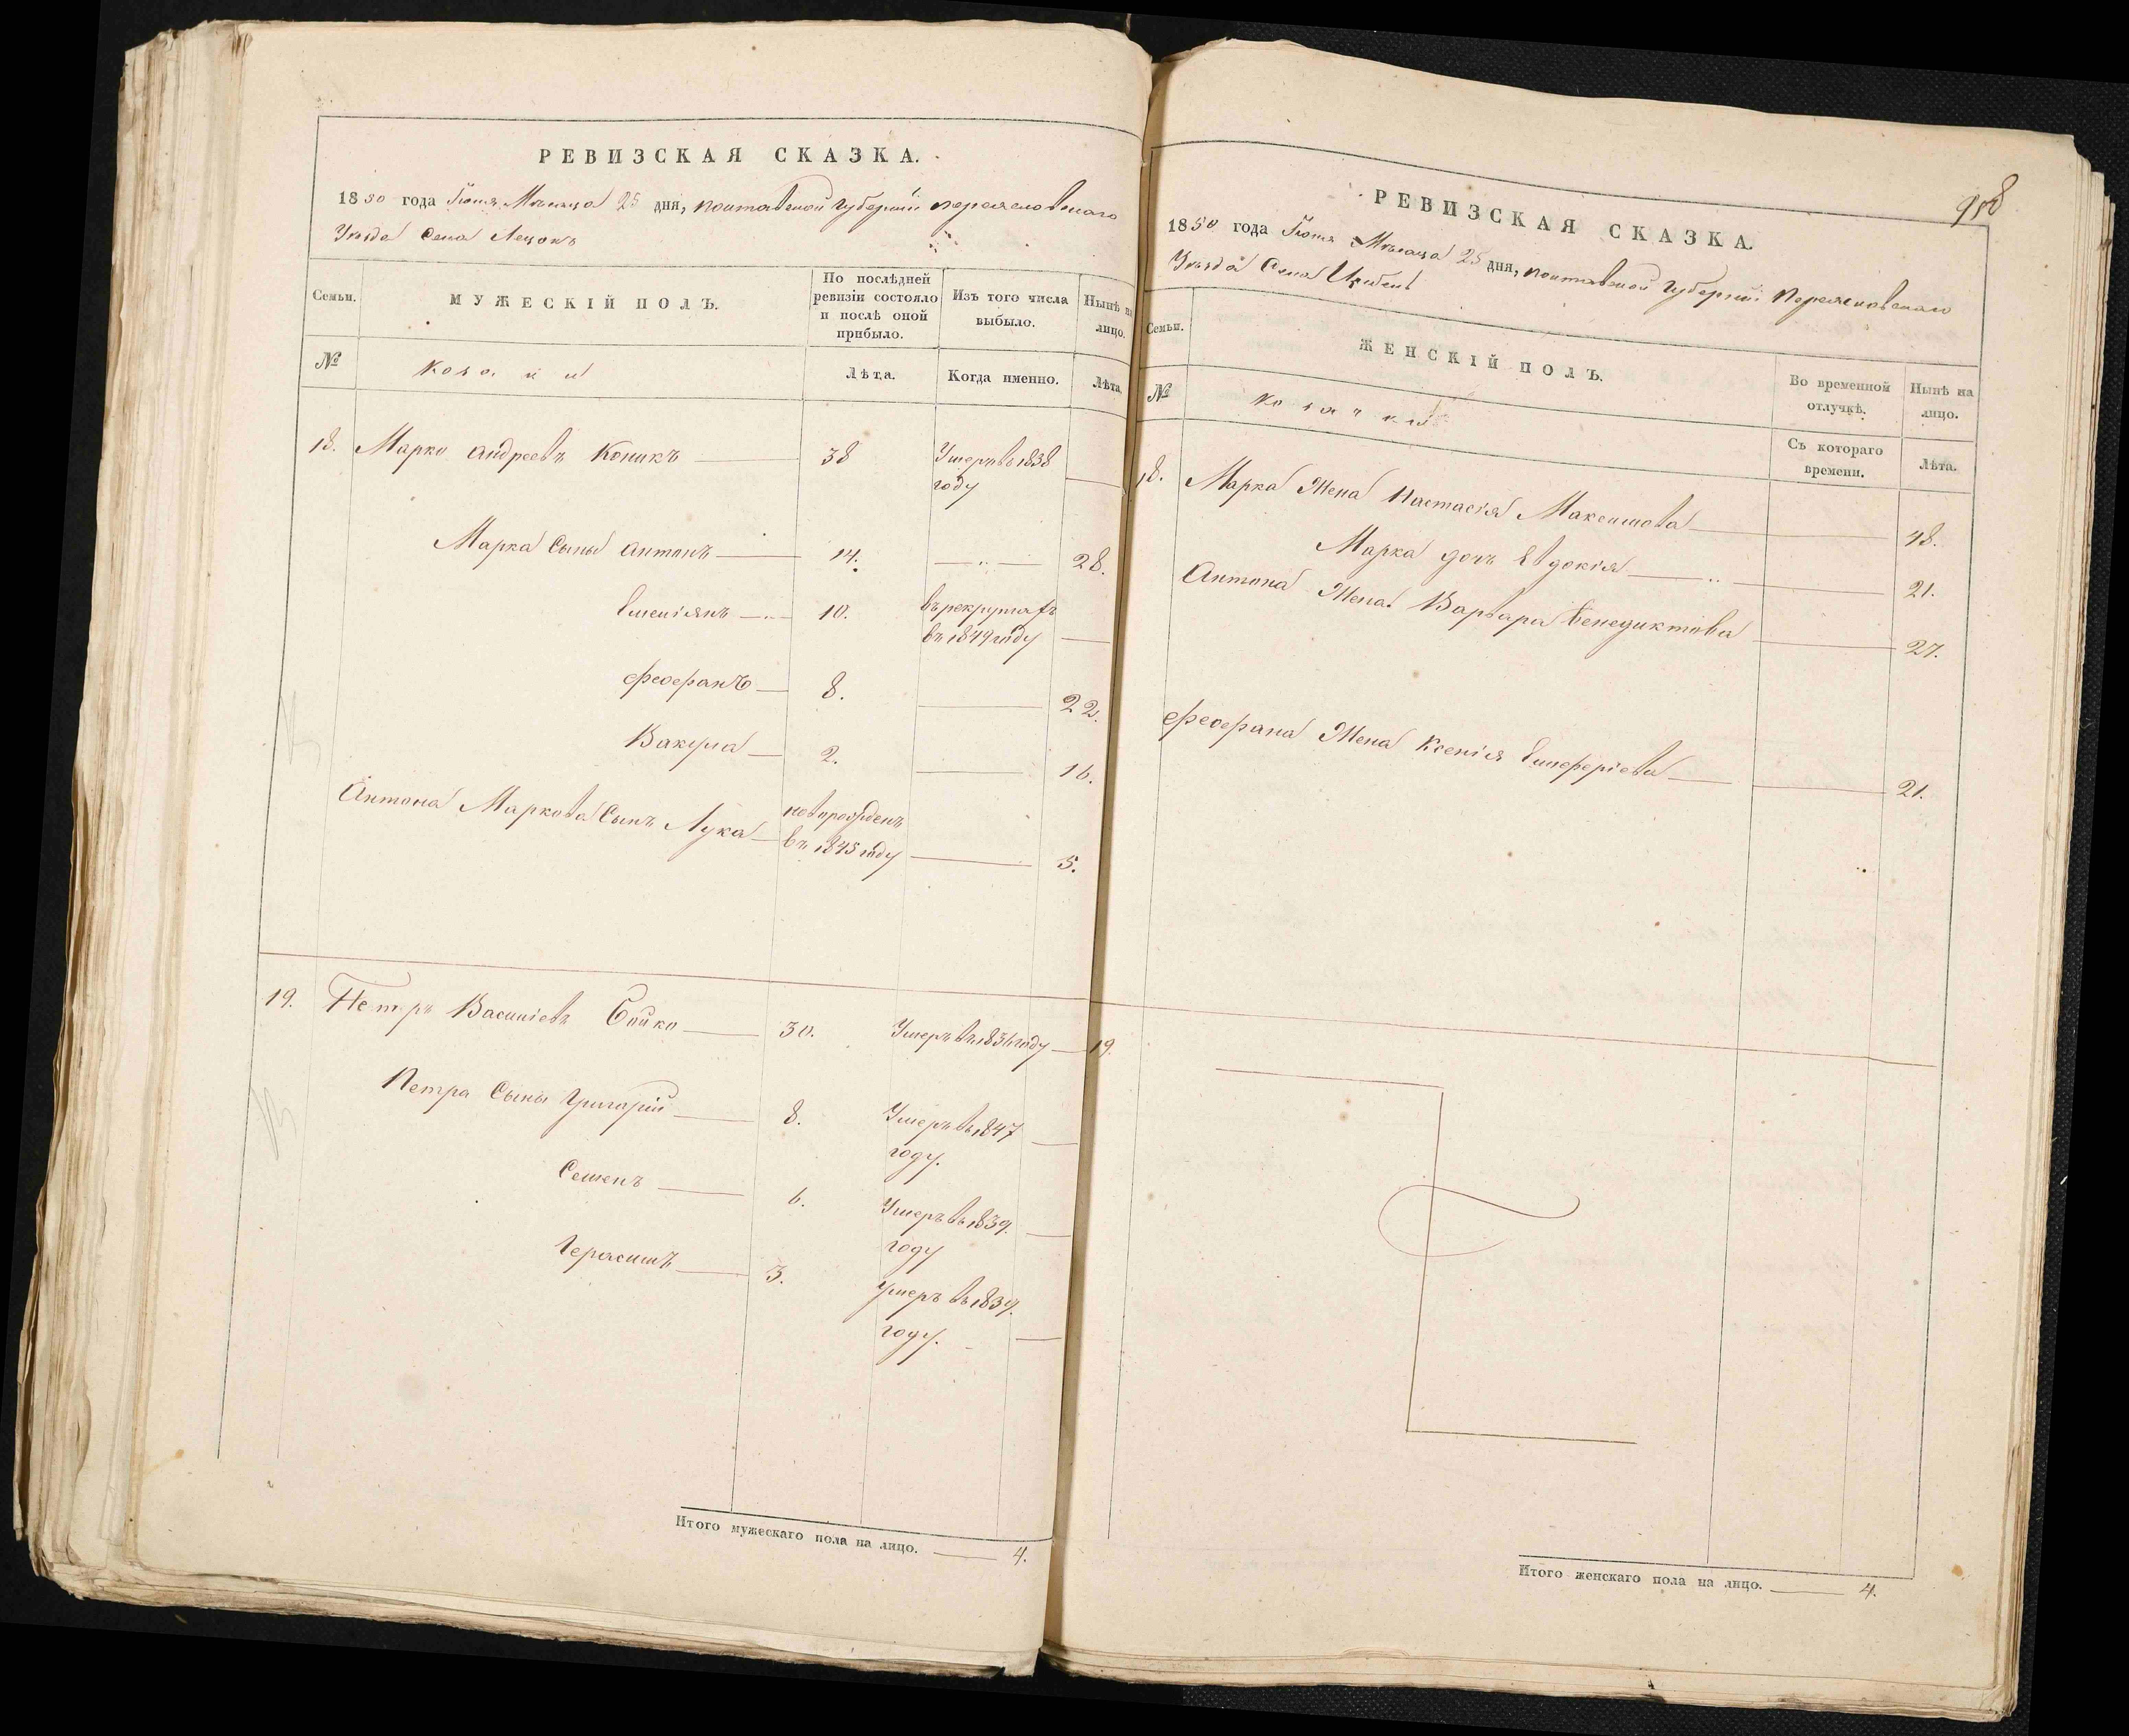 РЕВИЗСКАЯ СКАЗКА.
1850 года Іюня Мѣсяца 25 дня, Полтавской Губерніи Переясловскаго
Уѣзда Села
Семьи.
МУЖЕСКІЙ ПОЛЪ.
По послѣдней ревизіи состояло и послѣ оной прибыло.
Изъ того числа выбыло.
Нынѣ на лицо.
№
Козаки
Лѣта.
Когда именно.
Лѣта.
18. Марко Андреевъ Коникъ 38 Умеръ въ 1838
году
Марка Сыны Антонъ 14. 28.
Емеліянъ 10. въ рекрутахъ
въ 1849 году
Феофанъ 8. 22.
Вакула 2. 16.
Антона Маркова Сынъ Лука новорожденъ
въ 1845 году 5.
19. Петръ Васильевъ Бойко 30. Умеръ въ 1836 году
Петра Сыны Григорій 8. Умеръ въ 1847
году.
Семенъ 6. Умеръ въ 1839.
году
Герасимъ 3. Умеръ въ 1839.
году.
Итого мужескаго пола на лицо. 4.
РЕВИЗСКАЯ СКАЗКА.
1850 года Іюня Мѣсяца 25 дня, Полтавской Губерніи Переясловскаго
Уѣзда Села
Семьи.
ЖЕНСКІЙ ПОЛЪ.
Во временной отлучкѣ.
Нынѣ на лицо.
№
Козачки
Съ котораго времени.
Лѣта.
18. Марка Жена Настасія Максимова 48.
Марка дочь Евдокія 21.
Антона Жена Варвара Бенедиктова 27.
Феофана Жена Ксенія Елеферіева 21.
19.
Итого женскаго пола на лицо. 4.